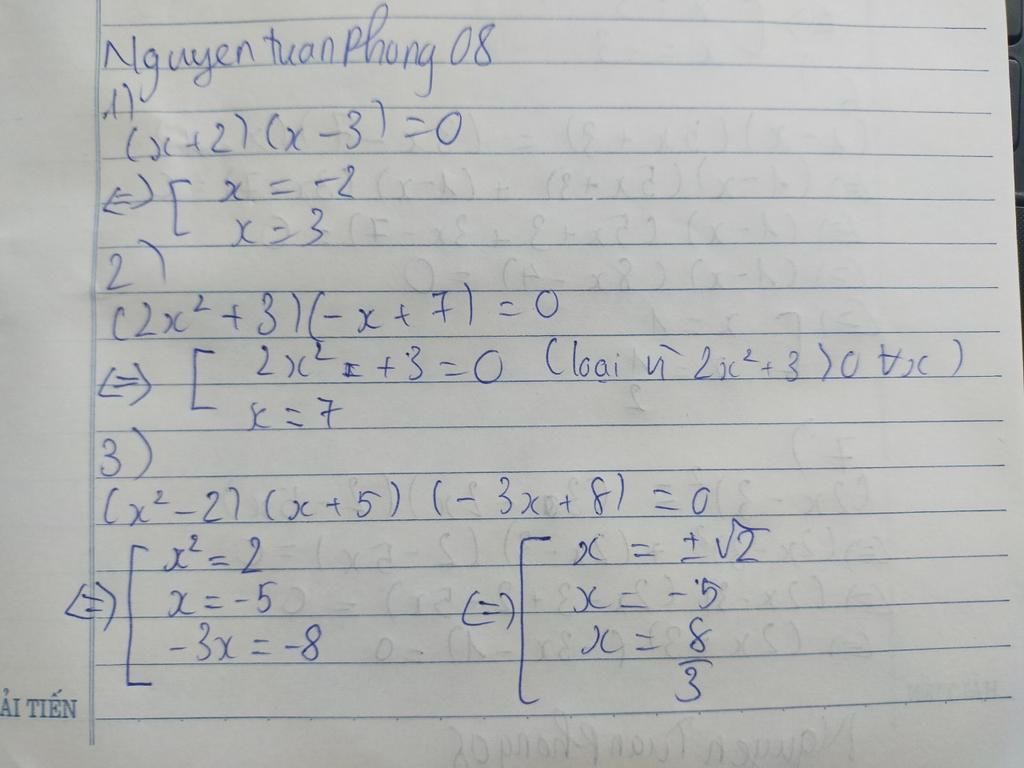 Nguyen tuan Phong 08
1)
(x+2)(x-3)=0
⇔ [ x = -2
x = 3
2)
(2x² + 3)(-x + 7) = 0
⇔ [ 2x² + 3 = 0 (loại vì 2x²+3 > 0 ∀x)
x = 7
3)
(x² - 2)(x + 5)(- 3x + 8) = 0
⇔ [ x² = 2 ⇔ [ x = ±√2
x = -5 x = -5
-3x = -8 x = 8/3
ẢI TIẾN